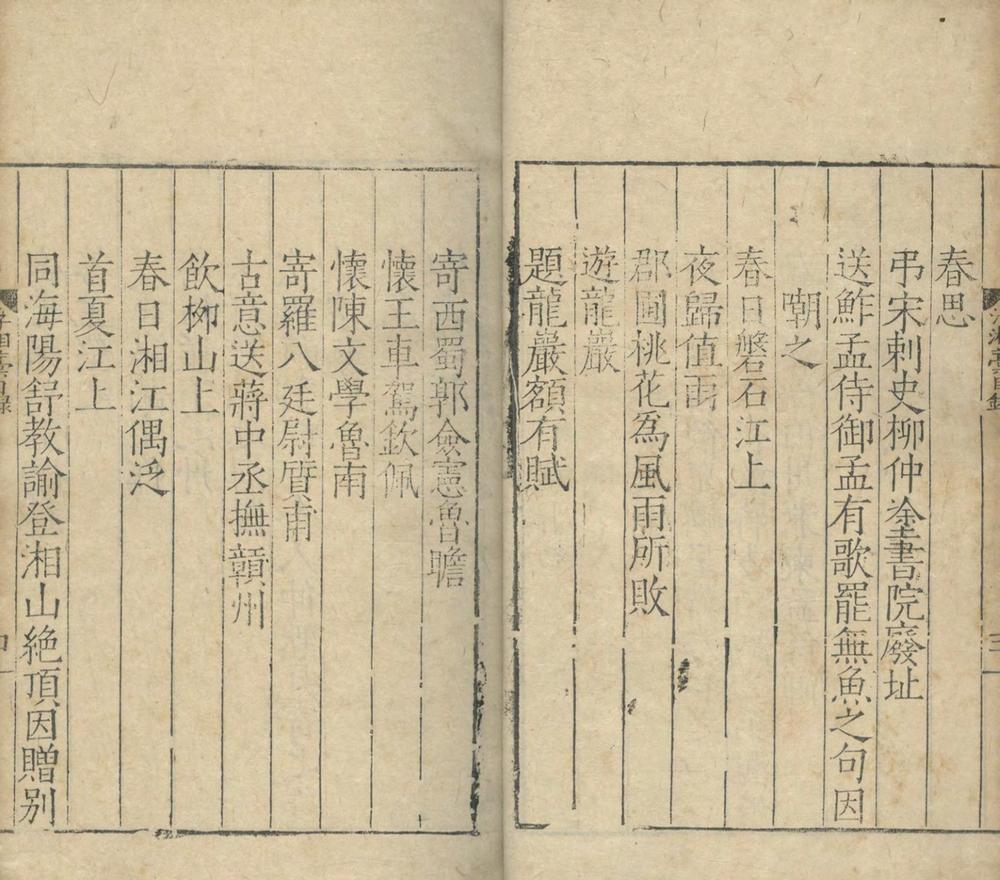 春思
弔宋刺史柳仲塗書院廢址
送鮓孟侍御孟有歌罷無魚之句因
嘲之
春日磐石江上
夜歸值雨
郡圃桃花為風雨所敗
遊龍巖
題龍巖額有賦
寄西蜀郭僉憲魯瞻
懷王車駕欽佩
懷陳文學魯南
寄羅八廷尉質甫
古意送蔣中丞撫贛州
飲柳山上
春日湘江偶泛
首夏江上
同海陽舒教諭登湘山絶頂因贈別